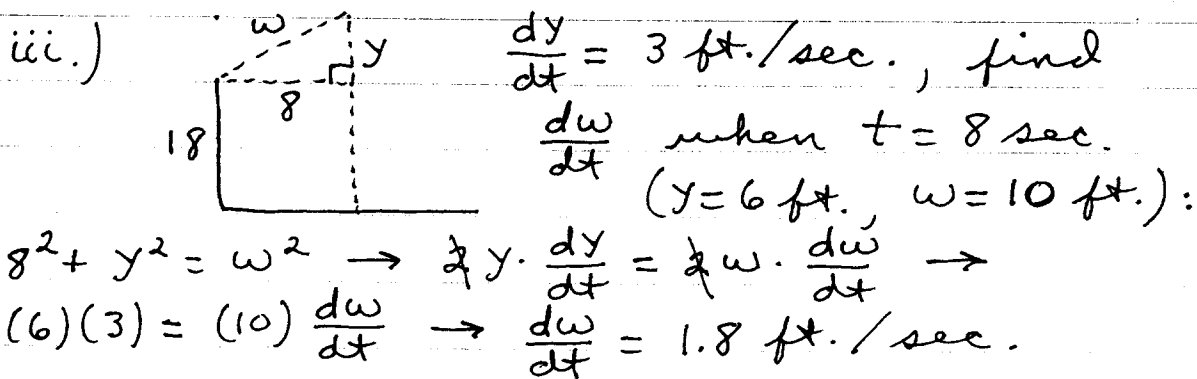 iii.) w y 8 18 dy/dt = 3 ft./sec., find
dw/dt when t = 8 sec.
(y = 6 ft., w = 10 ft.):
8² + y² = w² → 2y · dy/dt = 2w · dw/dt →
(6)(3) = (10) dw/dt → dw/dt = 1.8 ft./sec.